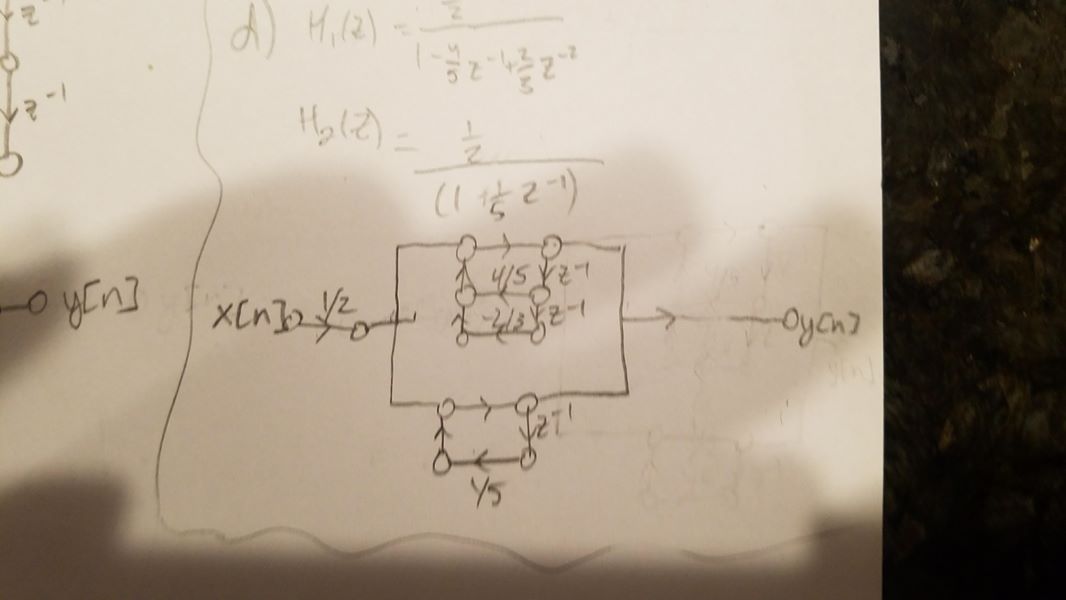 z⁻¹
z⁻¹
y[n]
d) H₁(z) = ½ / (1 - 4/5 z⁻¹ + 2/3 z⁻²)
H₂(z) = ½ / (1 + 1/5 z⁻¹)
x[n] 1/2
4/5 z⁻¹
-2/3 z⁻¹
y[n]
z⁻¹
1/5
y[n]